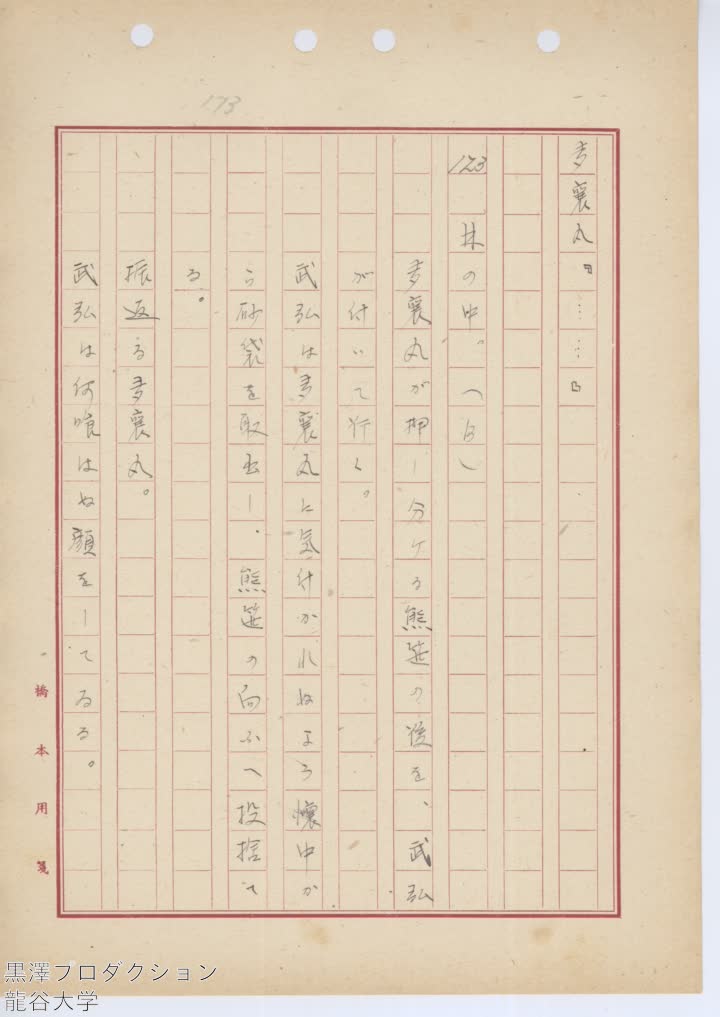 173
多襄丸「……」
123 林の中。(B)
多襄丸が押し分ケる熊笹の後を、武弘
が付いて行く。
武弘は多襄丸に気付かれぬよう懐中か
ら砂袋を取出し、熊笹の向ふへ投捨て
る。
振返る多襄丸。
武弘は何喰はぬ顔をしてゐる。
橋本用箋
黒澤プロダクション
龍谷大学